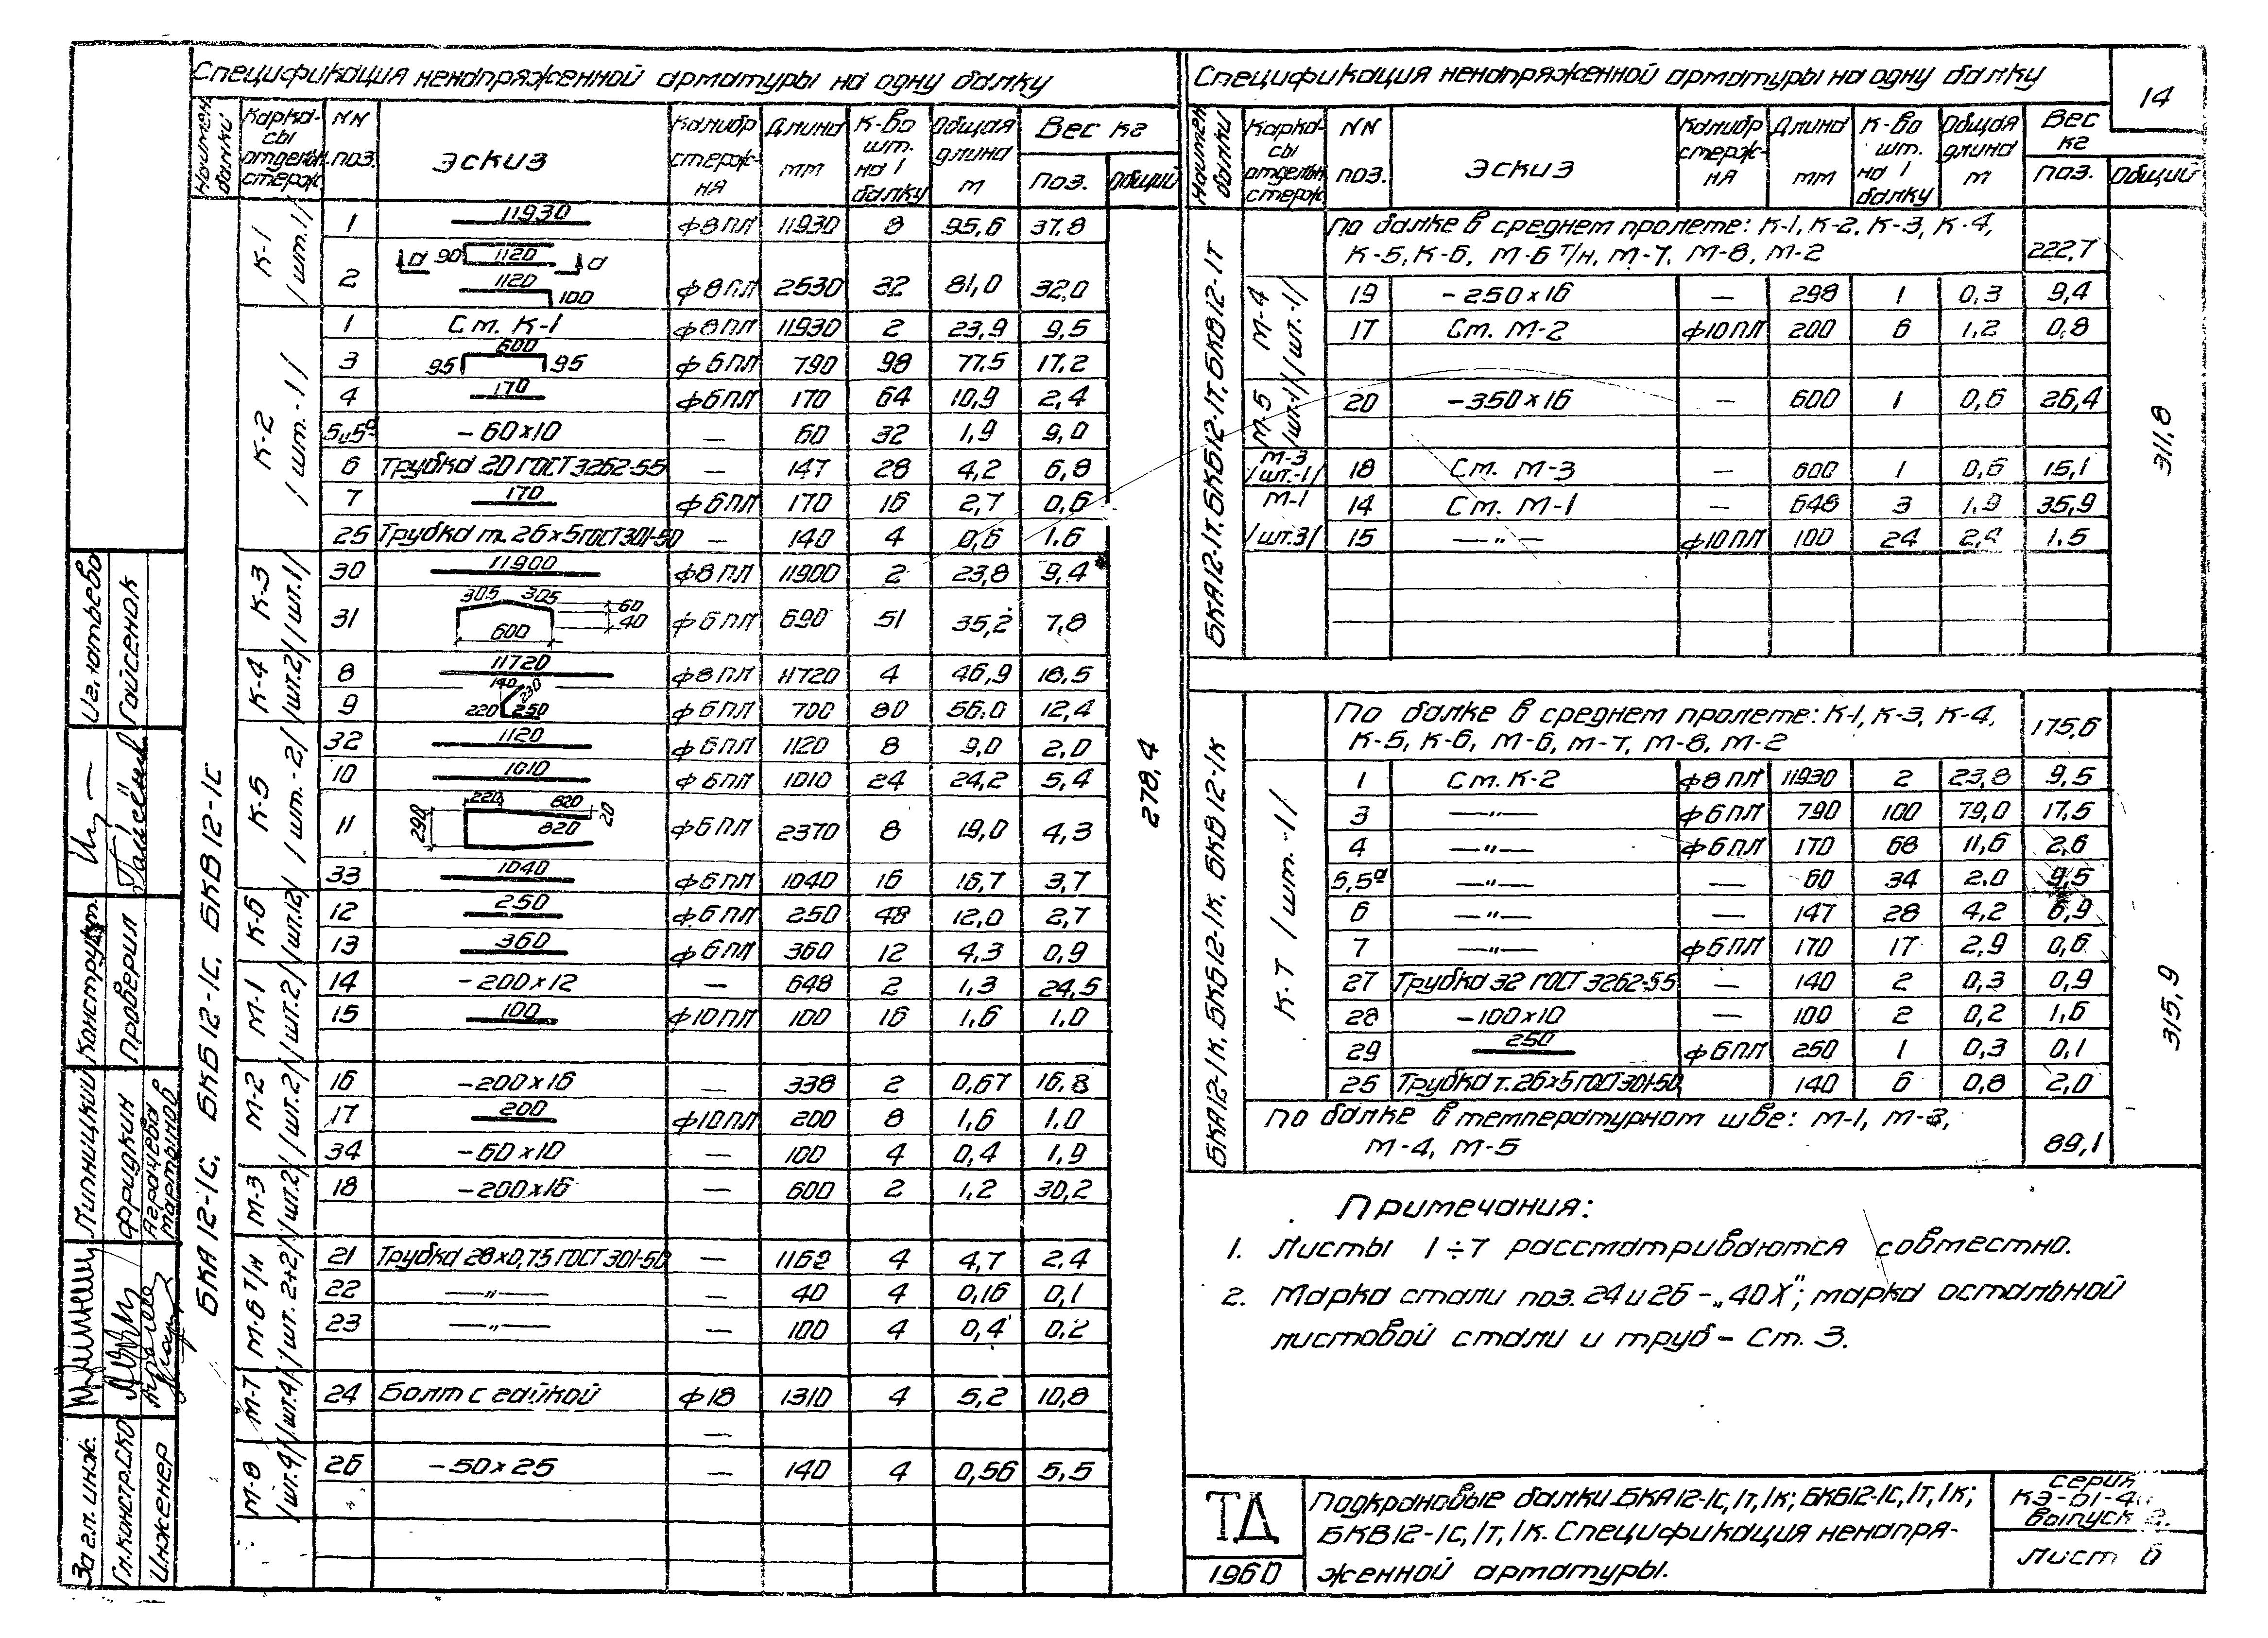 Спецификация ненапряженной арматуры на одну балку
Наимен. балки | Карка-сы отдельн. стерж. | NN поз. | Эскиз | Калибр стерж-ня | Длина мм | К-во шт. на 1 балку | Общая длина м | Вес кг поз. | Общий
БКА 12-1с, БКБ 12-1с, БКВ 12-1с
278,4
К-1 /шт.1/
1 11930 ф8пл 11930 8 95,6 37,8
2 а 90 1120 а 1120 100 ф8пл 2530 32 81,0 32,0
К-2 /шт.-1/
1 См. К-1 ф8пл 11930 2 23,9 9,5
3 95 600 95 ф6пл 790 98 77,5 17,2
4 170 ф6пл 170 64 10,9 2,4
5и5а -60х10 — 60 32 1,9 9,0
6 Трубка 20 ГОСТ 3262-55 — 147 28 4,2 6,8
7 170 ф6пл 170 16 2,7 0,6
25 Трубка т. 26х5 ГОСТ 301-50 — 140 4 0,6 1,6
К-3 /шт.1/
30 11900 ф8пл 11900 2 23,8 9,4
31 305 305 60 40 600 ф6пл 690 51 35,2 7,8
К-4 /шт.2/
8 11720 ф8пл 11720 4 46,9 18,5
9 140 230 220 250 ф6пл 700 80 56,0 12,4
К-5 /шт.-2/
32 1120 ф6пл 1120 8 9,0 2,0
10 1010 ф6пл 1010 24 24,2 5,4
11 290 220 820 20 820 ф6пл 2370 8 19,0 4,3
33 1040 ф6пл 1040 16 16,7 3,7
К-6 /шт.12/
12 250 ф6пл 250 48 12,0 2,7
13 360 ф6пл 360 12 4,3 0,9
М-1 /шт.2/
14 -200х12 — 648 2 1,3 24,5
15 100 ф10пл 100 16 1,6 1,0
М-2 /шт.2/
16 -200х16 — 338 2 0,67 16,8
17 200 ф10пл 200 8 1,6 1,0
34 -60х10 — 100 4 0,4 1,9
М-3 /шт.2/
18 -200х16 — 600 2 1,2 30,2
М-6 т/н /шт. 2+2/
21 Трубка 28х0,75 ГОСТ 301-50 — 1168 4 4,7 2,4
22 —"— — 40 4 0,16 0,1
23 —"— — 100 4 0,4 0,2
М-7 /шт.4/
24 Болт с гайкой ф18 1310 4 5,2 10,8
—
М-8 /шт.4/
26 -50х25 — 140 4 0,56 5,5
Спецификация ненапряженной арматуры на одну балку
14
Наимен. балки | Карка-сы отдельн. стерж. | NN поз. | Эскиз | Калибр стерж-ня | Длина мм | К-во шт. на 1 балку | Общая длина м | Вес кг поз. | Общий
БКА12-1т, БКБ12-1т, БКВ12-1т
311,8
По балке в среднем пролете: К-1, К-2, К-3, К-4,
К-5, К-6, М-6 т/н, М-7, М-8, М-2 222,7
М-4 /шт.-1/
19 -250х16 — 298 1 0,3 9,4
17 См. М-2 ф10пл 200 6 1,2 0,8
М-5 /шт.-1/
20 -350х16 — 600 1 0,6 26,4
М-3 /шт.-1/
18 См. М-3 — 600 1 0,6 15,1
М-1 /шт.3/
14 См. М-1 — 648 3 1,9 35,9
15 —"— ф10пл 100 24 2,4 1,5
БКА12-1к, БКБ12-1к, БКВ 12-1к
315,9
По балке в среднем пролете: К-1, К-3, К-4,
К-5, К-6, М-6, М-7, М-8, М-2 175,6
К-7 /шт.-1/
1 См. К-2 ф8пл 11930 2 23,8 9,5
3 —"— ф6пл 790 100 79,0 17,5
4 —"— ф6пл 170 68 11,6 2,6
5,5а —"— — 60 34 2,0 9,5
6 —"— — 147 28 4,2 6,9
7 —"— ф6пл 170 17 2,9 0,6
27 Трубка 32 ГОСТ 3262-55 — 140 2 0,3 0,9
28 -100х10 — 100 2 0,2 1,6
29 250 ф6пл 250 1 0,3 0,1
25 Трубка т. 26х5 ГОСТ 301-50 140 6 0,8 2,0
По балке в температурном шве: М-1, М-3,
М-4, М-5 89,1
Примечания:
1. Листы 1÷7 рассматриваются совместно.
2. Марка стали поз. 24 и 26 - „40Х"; марка остальной
листовой стали и труб - Ст. 3.
ТД
1960
Подкрановые балки БКА12-1с, 1т, 1к; БКБ12-1с, 1т, 1к;
БКВ12-1с, 1т, 1к. Спецификация ненапря-
женной арматуры.
серия
КЭ-01-4
выпуск 2.
Лист 6
За гл. инж. Липницкий
Гл.констр.СКО Фридкин
Инженер Аграчева Мартынов
Конструкт.
Проверил Гайсенок